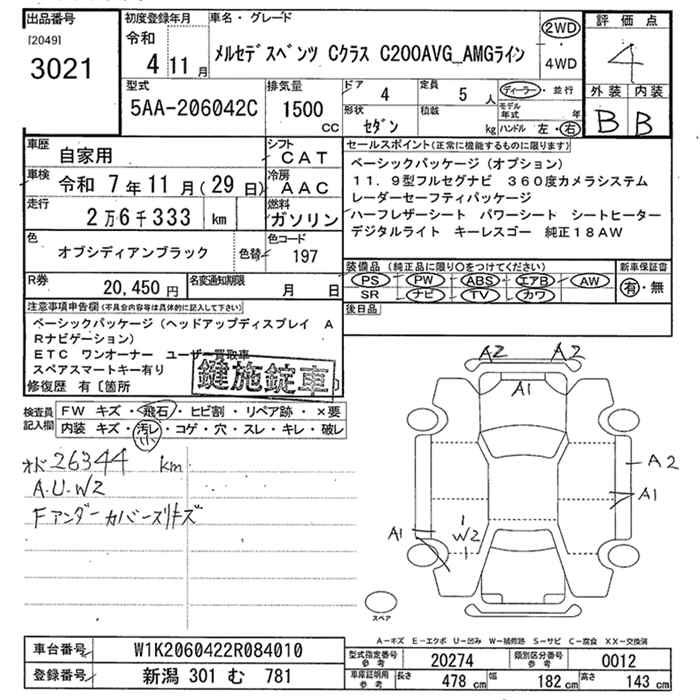 出品番号
[2049]
3021
初度登録年月
令和
4 11月
車名・グレード
メルセデスベンツ Cクラス C200AVG_AMGライン
2WD
・
4WD
評価点
4
外装 内装
B B
型式
5AA-206042C
排気量
1500
CC
ドア 4
定員 5 人
ディーラー・並行
モデル年式 年
形状 セダン
積載 kg
ハンドル 左・右
車歴 自家用
シフト CAT
車検 令和 7年11月(29日)
冷房 AAC
走行 2万6千333 km
燃料 ガソリン
色 オブシディアンブラック 色替
色コード 197
セールスポイント(正常に機能するものに限ります)
ベーシックパッケージ(オプション)
11.9型フルセグナビ 360度カメラシステム
レーダーセーフティパッケージ
ハーフレザーシート パワーシート シートヒーター
デジタルライト キーレスゴー 純正18AW
R券 20,450円
名変通知期限 月 日
装備品(純正品に限り〇をつけてください)
PS PW ABS エアB AW
SR ナビ TV カワ
新車保証書
有・無
後日品
注意事項申告欄(不具合内容等は具体的に記入して下さい)
ベーシックパッケージ(ヘッドアップディスプレイ A
Rナビゲーション)
ETC ワンオーナー ユーザー買取車
スペアスマートキー有り
修復歴 有〔箇所 〕
鍵施錠車
検査員記入欄
FW キズ・飛石・ヒビ割・リペア跡・×要
内装 キズ・汚レ・コゲ・穴・スレ・キレ・破レ
小
オド26344 km
A.U.W2
Fアンダーカバーズリキズ
A2 A2
A1
A2
A1
A1
W2
スペア
A-キズ E-エクボ U-凹み W-補修跡 S-サビ C-腐食 XX-交換済
車台番号 W1K2060422R084010
登録番号 新潟 301 む 781
型式指定番号 参考 20274
類別区分番号 参考 0012
車庫証明用 参考 長さ 478 cm 幅 182 cm 高さ 143 cm